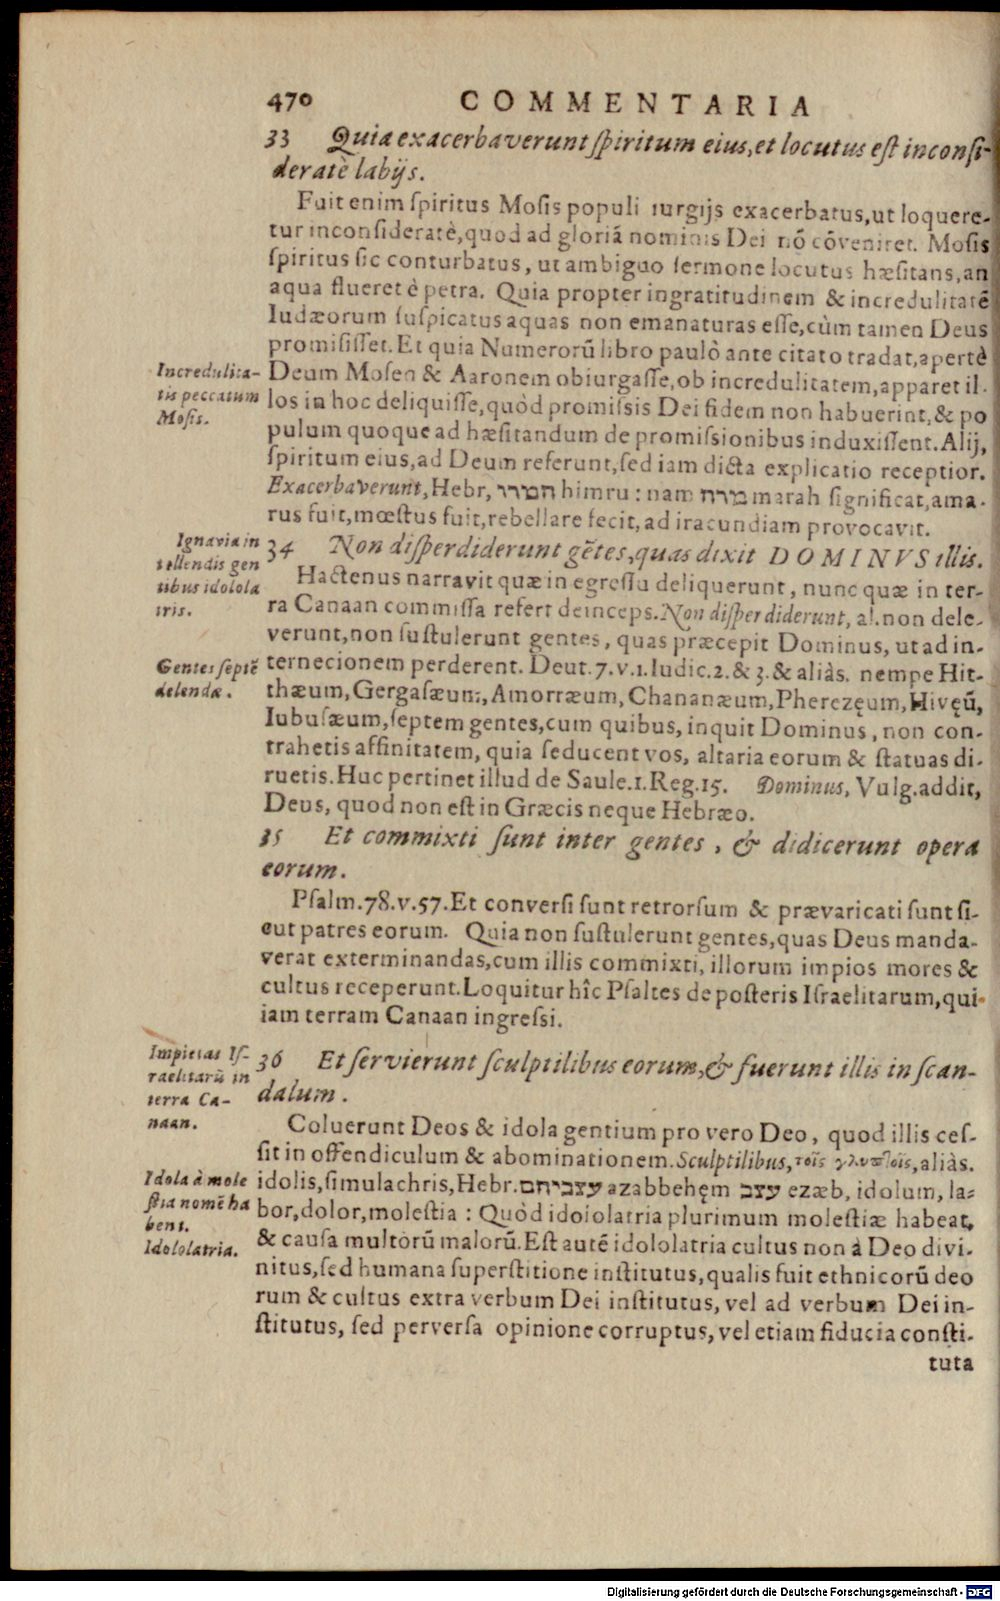 470 COMMENTARIA
33 Quia exacerbaverunt ſpiritum eius, et locutus eſt inconſi-
deratè labijs.
Fuit enim ſpiritus Moſis populi iurgijs exacerbatus, ut loquere-
tur inconſideratè, quod ad gloriã nominis Dei nõ cõveniret. Moſis
ſpiritus ſic conturbatus, ut ambiguo ſermone locutus hæſitans, an
aqua flueret è petra. Quia propter ingratitudinem & incredulitatẽ
Iudæorum ſuſpicatus aquas non emanaturas eſſe, cùm tamen Deus
promiſiſſet. Et quia Numerorũ libro paulò ante citato tradat, apertè
Incredulita-
tis peccatum
Moſis.
Deum Moſen & Aaronem obiurgaſſe, ob incredulitatem, apparet il-
los in hoc deliquiſſe, quòd promiſsis Dei fidem non habuerint, & po
pulum quoque ad hæſitandum de promiſsionibus induxiſſent. Alij,
ſpiritum eius, ad Deum referunt, ſed iam dicta explicatio receptior.
Exacerbaverunt, Hebr, המרו himru: nam מרה marah ſignificat, ama-
rus fuit, mœſtus fuit, rebellare fecit, ad iracundiam provocavit.
Ignavia in
tollendis gen
tibus idolola
tris.
34 Non diſperdiderunt gẽtes, quas dixit DOMINVS illis.
Hactenus narravit quæ in egreſſu deliquerunt, nunc quæ in ter-
ra Canaan commiſſa refert deinceps. Non diſperdiderunt, al. non dele-
verunt, non ſuſtulerunt gentes, quas præcepit Dominus, ut ad in-
Gentes ſeptẽ
delendæ.
ternecionem perderent. Deut. 7. v. 1. Iudic. 2. & 3. & aliàs. nempe Hit-
thæum, Gergaſæum, Amorræum, Chananæum, Pherezęum, Hivęũ,
Iubuſæum, ſeptem gentes, cum quibus, inquit Dominus, non con-
trahetis affinitatem, quia ſeducent vos, altaria eorum & ſtatuas di-
ruetis. Huc pertinet illud de Saule. 1. Reg. 15. Dominus, Vulg. addit,
Deus, quod non eſt in Græcis neque Hebræo.
35 Et commixti ſunt inter gentes, & didicerunt opera
eorum.
Pſalm. 78. v. 57. Et converſi ſunt retrorſum & prævaricati ſunt ſi-
cut patres eorum. Quia non ſuſtulerunt gentes, quas Deus manda-
verat exterminandas, cum illis commixti, illorum impios mores &
cultus receperunt. Loquitur hîc Pſaltes de poſteris Iſraelitarum, qui
iam terram Canaan ingreſsi.
Impietas Iſ-
raelitarũ in
terra Ca-
naan.
36 Et ſervierunt ſculptilibus eorum, & fuerunt illis in ſcan-
dalum.
Coluerunt Deos & idola gentium pro vero Deo, quod illis ceſ-
ſit in offendiculum & abominationem. Sculptilibus, τοῖς γλυπτοῖς, aliàs.
Idola à mole
ſtia nomẽ ha
bent.
Idololatria.
idolis, ſimulachris, Hebr. עצביהם azabbehęm עצב ezæb, idolum, la-
bor, dolor, moleſtia: Quòd idololatria plurimum moleſtiæ habeat,
& cauſa multorũ malorũ. Eſt autẽ idololatria cultus non à Deo divi-
nitus, ſed humana ſuperſtitione inſtitutus, qualis fuit ethnicorũ deo
rum & cultus extra verbum Dei inſtitutus, vel ad verbum Dei in-
ſtitutus, ſed perverſa opinione corruptus, vel etiam fiducia conſti-
tuta
Digitalisierung gefördert durch die Deutsche Forschungsgemeinschaft - DFG